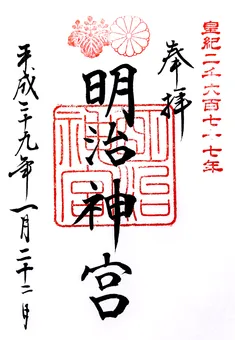 皇紀二千六百七十七年
奉拝
明治神宮
明治
神宮
平成二十九年一月二十二日